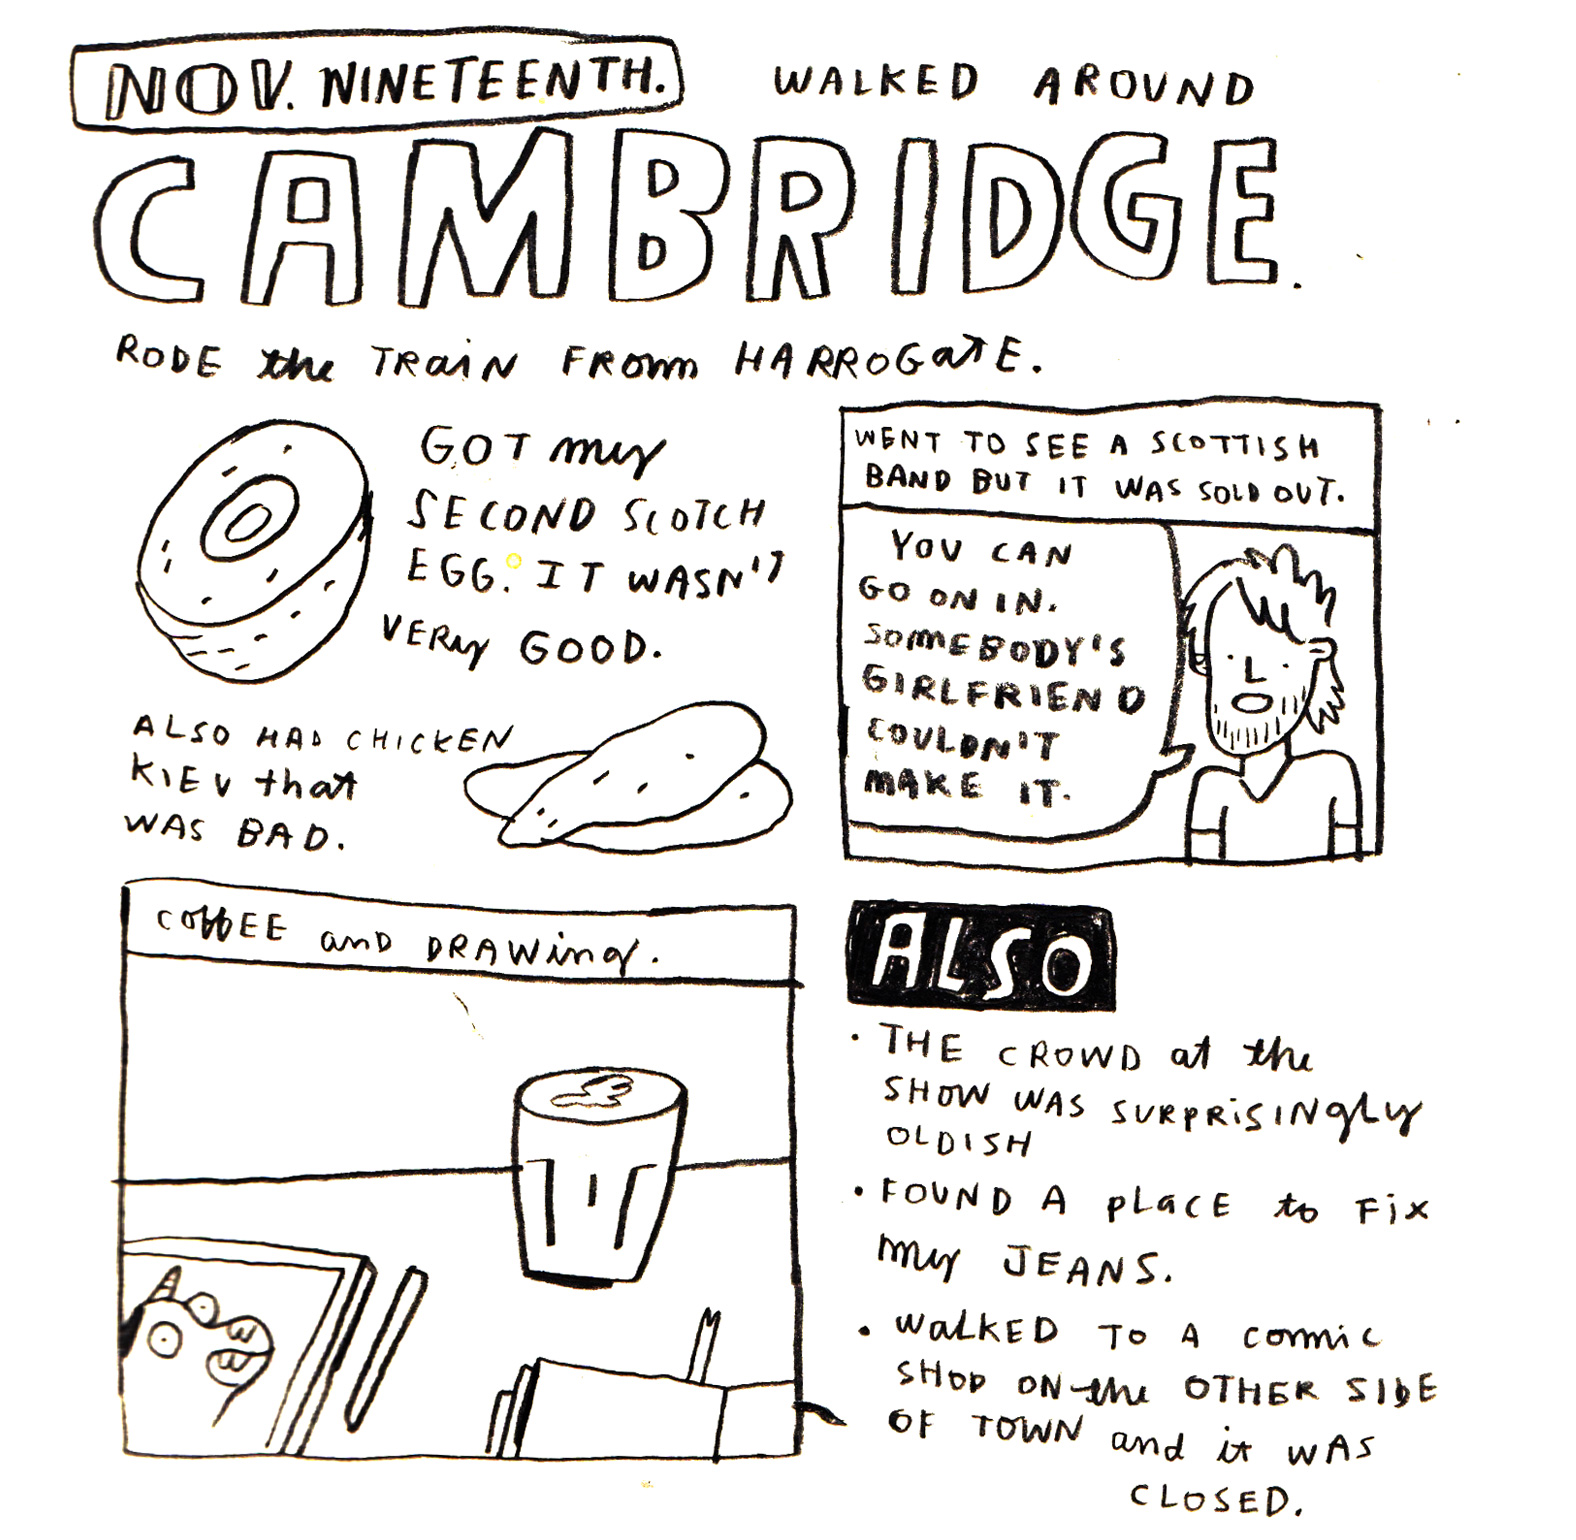 NOV. NINETEENTH.
WALKED AROUND
CAMBRIDGE.
RODE the TRAIN FROM HARROGATE.
GOT my
SECOND SCOTCH
EGG. IT WASN'T
VERY GOOD.
ALSO HAD CHICKEN
KIEV that
WAS BAD.
WENT TO SEE A SCOTTISH
BAND BUT IT WAS SOLD OUT.
YOU CAN
GO ON IN.
SOMEBODY'S
GIRLFRIEND
COULDN'T
MAKE IT.
COFFEE and DRAWING.
ALSO
• THE CROWD at the
SHOW WAS SURPRISINGLY
OLDISH
• FOUND A PLACE to FIX
my JEANS.
• WALKED TO A comic
SHOP ON the OTHER SIDE
OF TOWN and it WAS
CLOSED.